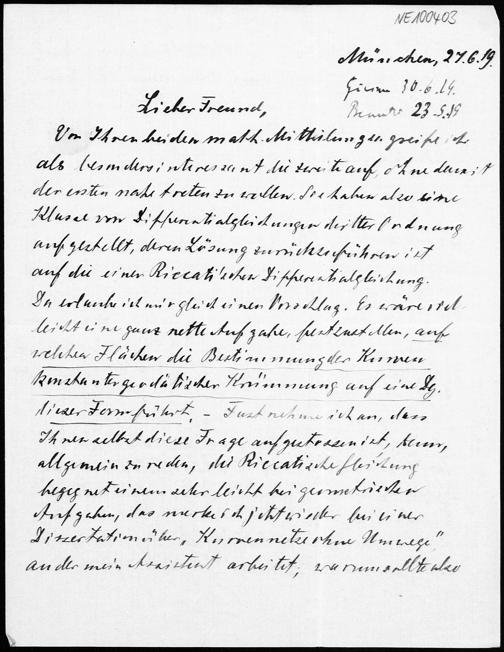 NE100403
München, 27.6.19.
30.6.19.
23.9.19
Lieber Freund,
Von Ihren beiden math. Mittheilungen greife ich
als besonders interessant die zweite auf, ohne damit
der ersten nahe treten zu wollen. Sie haben also eine
Klasse von Differentialgleichungen dritter Ordnung
aufgestellt, deren Lösung zurückzuführen ist
auf die einer Riccati'schen Differentialgleichung.
Da erlaube ich mir gleich einen Vorschlag. Es wäre viel-
leicht eine ganz nette Aufgabe, festzustellen, auf
welchen Flächen die Bestimmung der Kurven
konstanter geodätischer Krümmung auf eine Dg.
dieser Form führt. – Fast nehme ich an, dass
Ihnen selbst diese Frage aufgestossen ist, denn,
allgemein zu reden, die Riccatische Gleichung
begegnet einem sehr leicht bei geometrischen
Aufgaben, das merke ich jetzt wieder bei einer
Dissertation über „Kurvennetze ohne Umwege",
an der mein Assistent arbeitet, warum sollte also